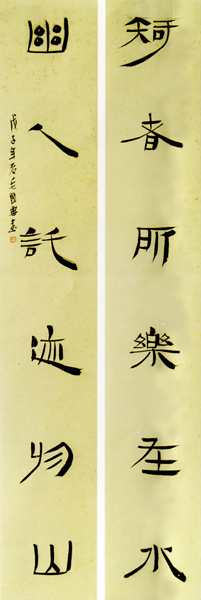 知者所樂在水
幽人託迹物山
戊子年